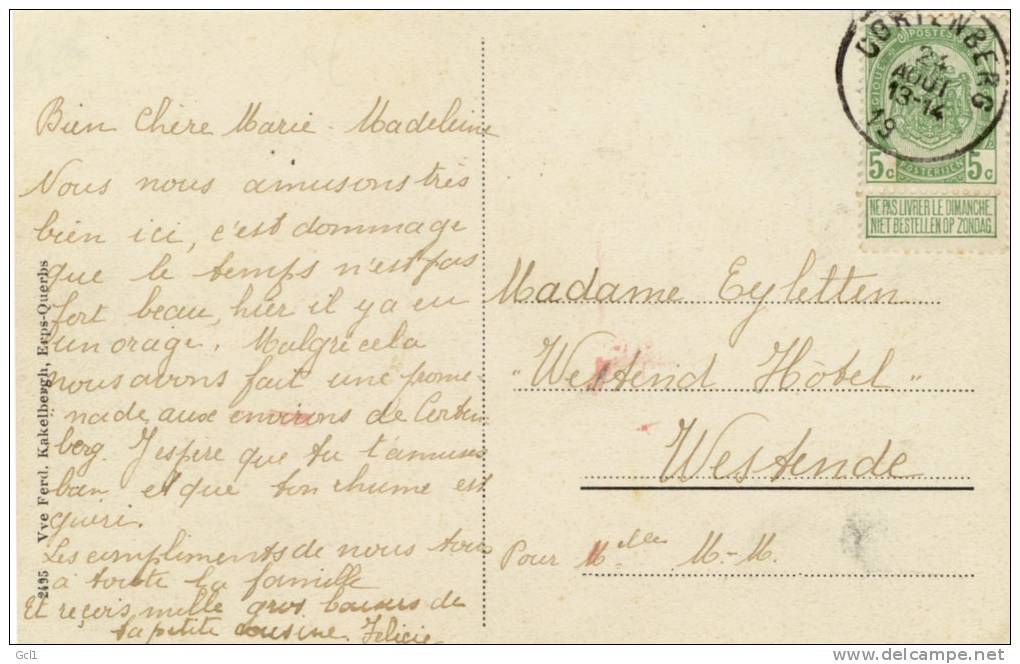 Bien Chère Marie-Madeleine
Nous nous amusons très
bien ici, c'est dommage
que le temps n'est pas
fort beau, hier il y a eu
un orage. Malgré cela
nous avons fait une prome-
nade aux environs de Corten
berg. J'espère que tu t'amuses
bien et que ton rhume est
guéri.
Les compliments de nous tous
à toute la famille
Et reçois mille gros baisers de
ta petite cousine. Félicie
2495 Vve Ferd. Kakelbergh, Erps-Querbs
CORTENBERG
24
AOUT
13-14
19
POSTES
5c 5c
POSTERIJEN
NE PAS LIVRER LE DIMANCHE
NIET BESTELLEN OP ZONDAG
Madame Eyletten
"Westend Hôtel"
Westende
Pour Melle M-M.
Gcl1
delcampe.net